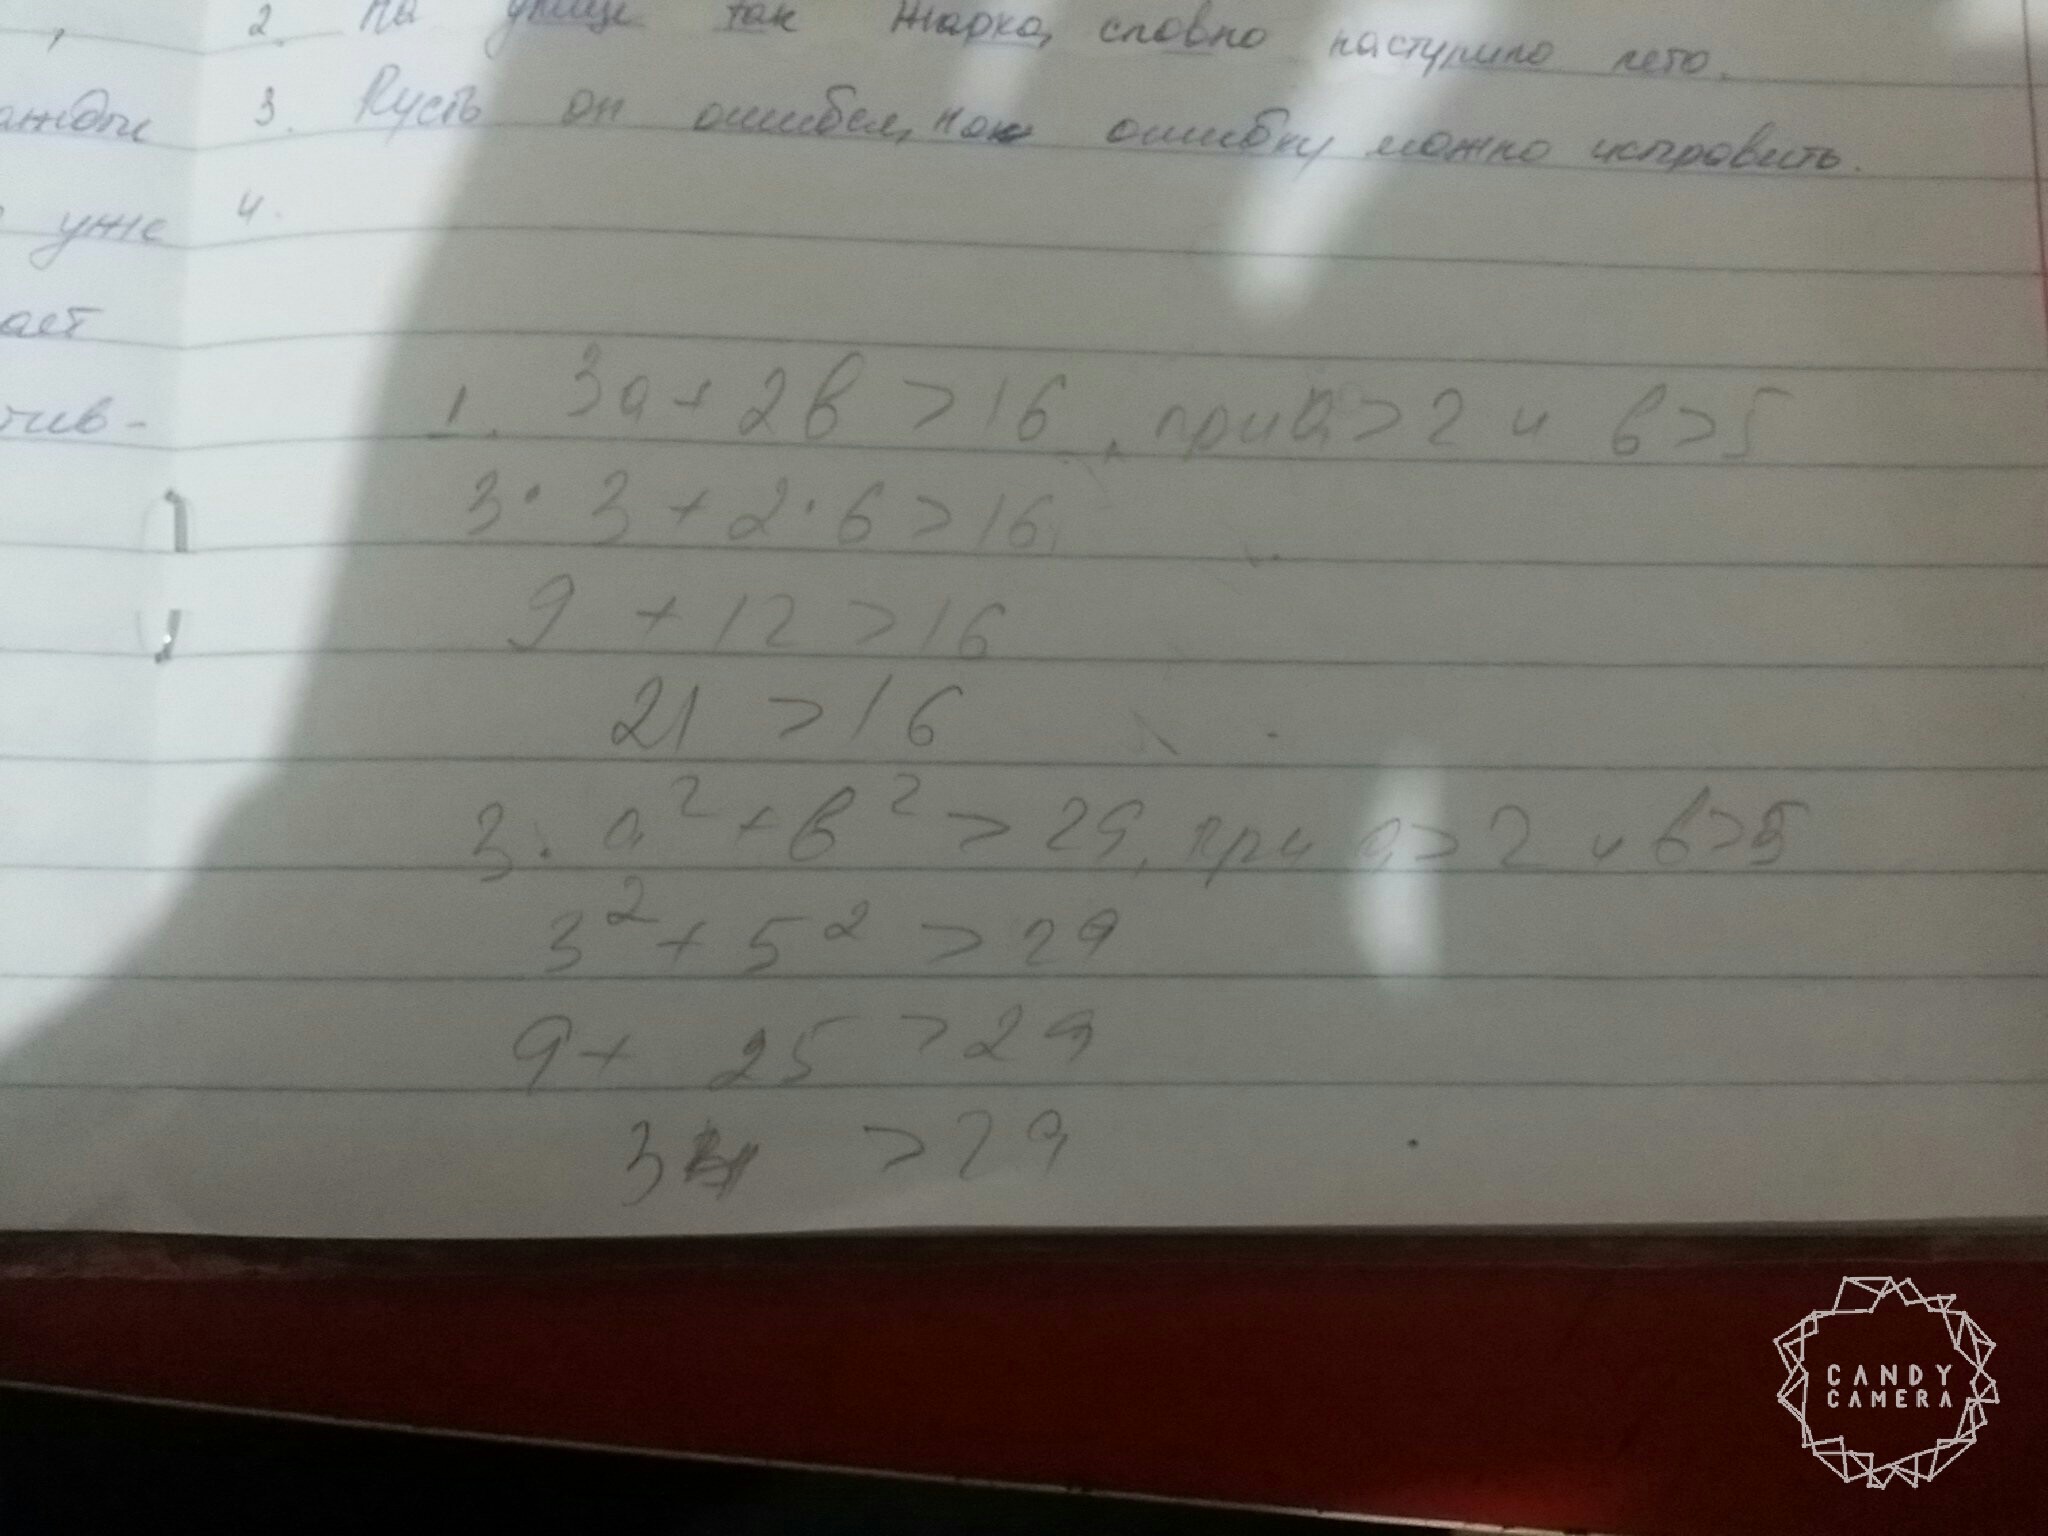 2. На улице так жарко, словно наступило лето.
3. Пусть он ошибся, но ошибку можно исправить.
уже
4.
ает
тив-
1. 3a + 2b > 16, при a > 2 и b > 5
3 · 3 + 2 · 6 > 16
9 + 12 > 16
21 > 16
3. a² + b² > 29, при a > 2 и b > 5
3² + 5² > 29
9 + 25 > 29
> 29
CANDY
CAMERA